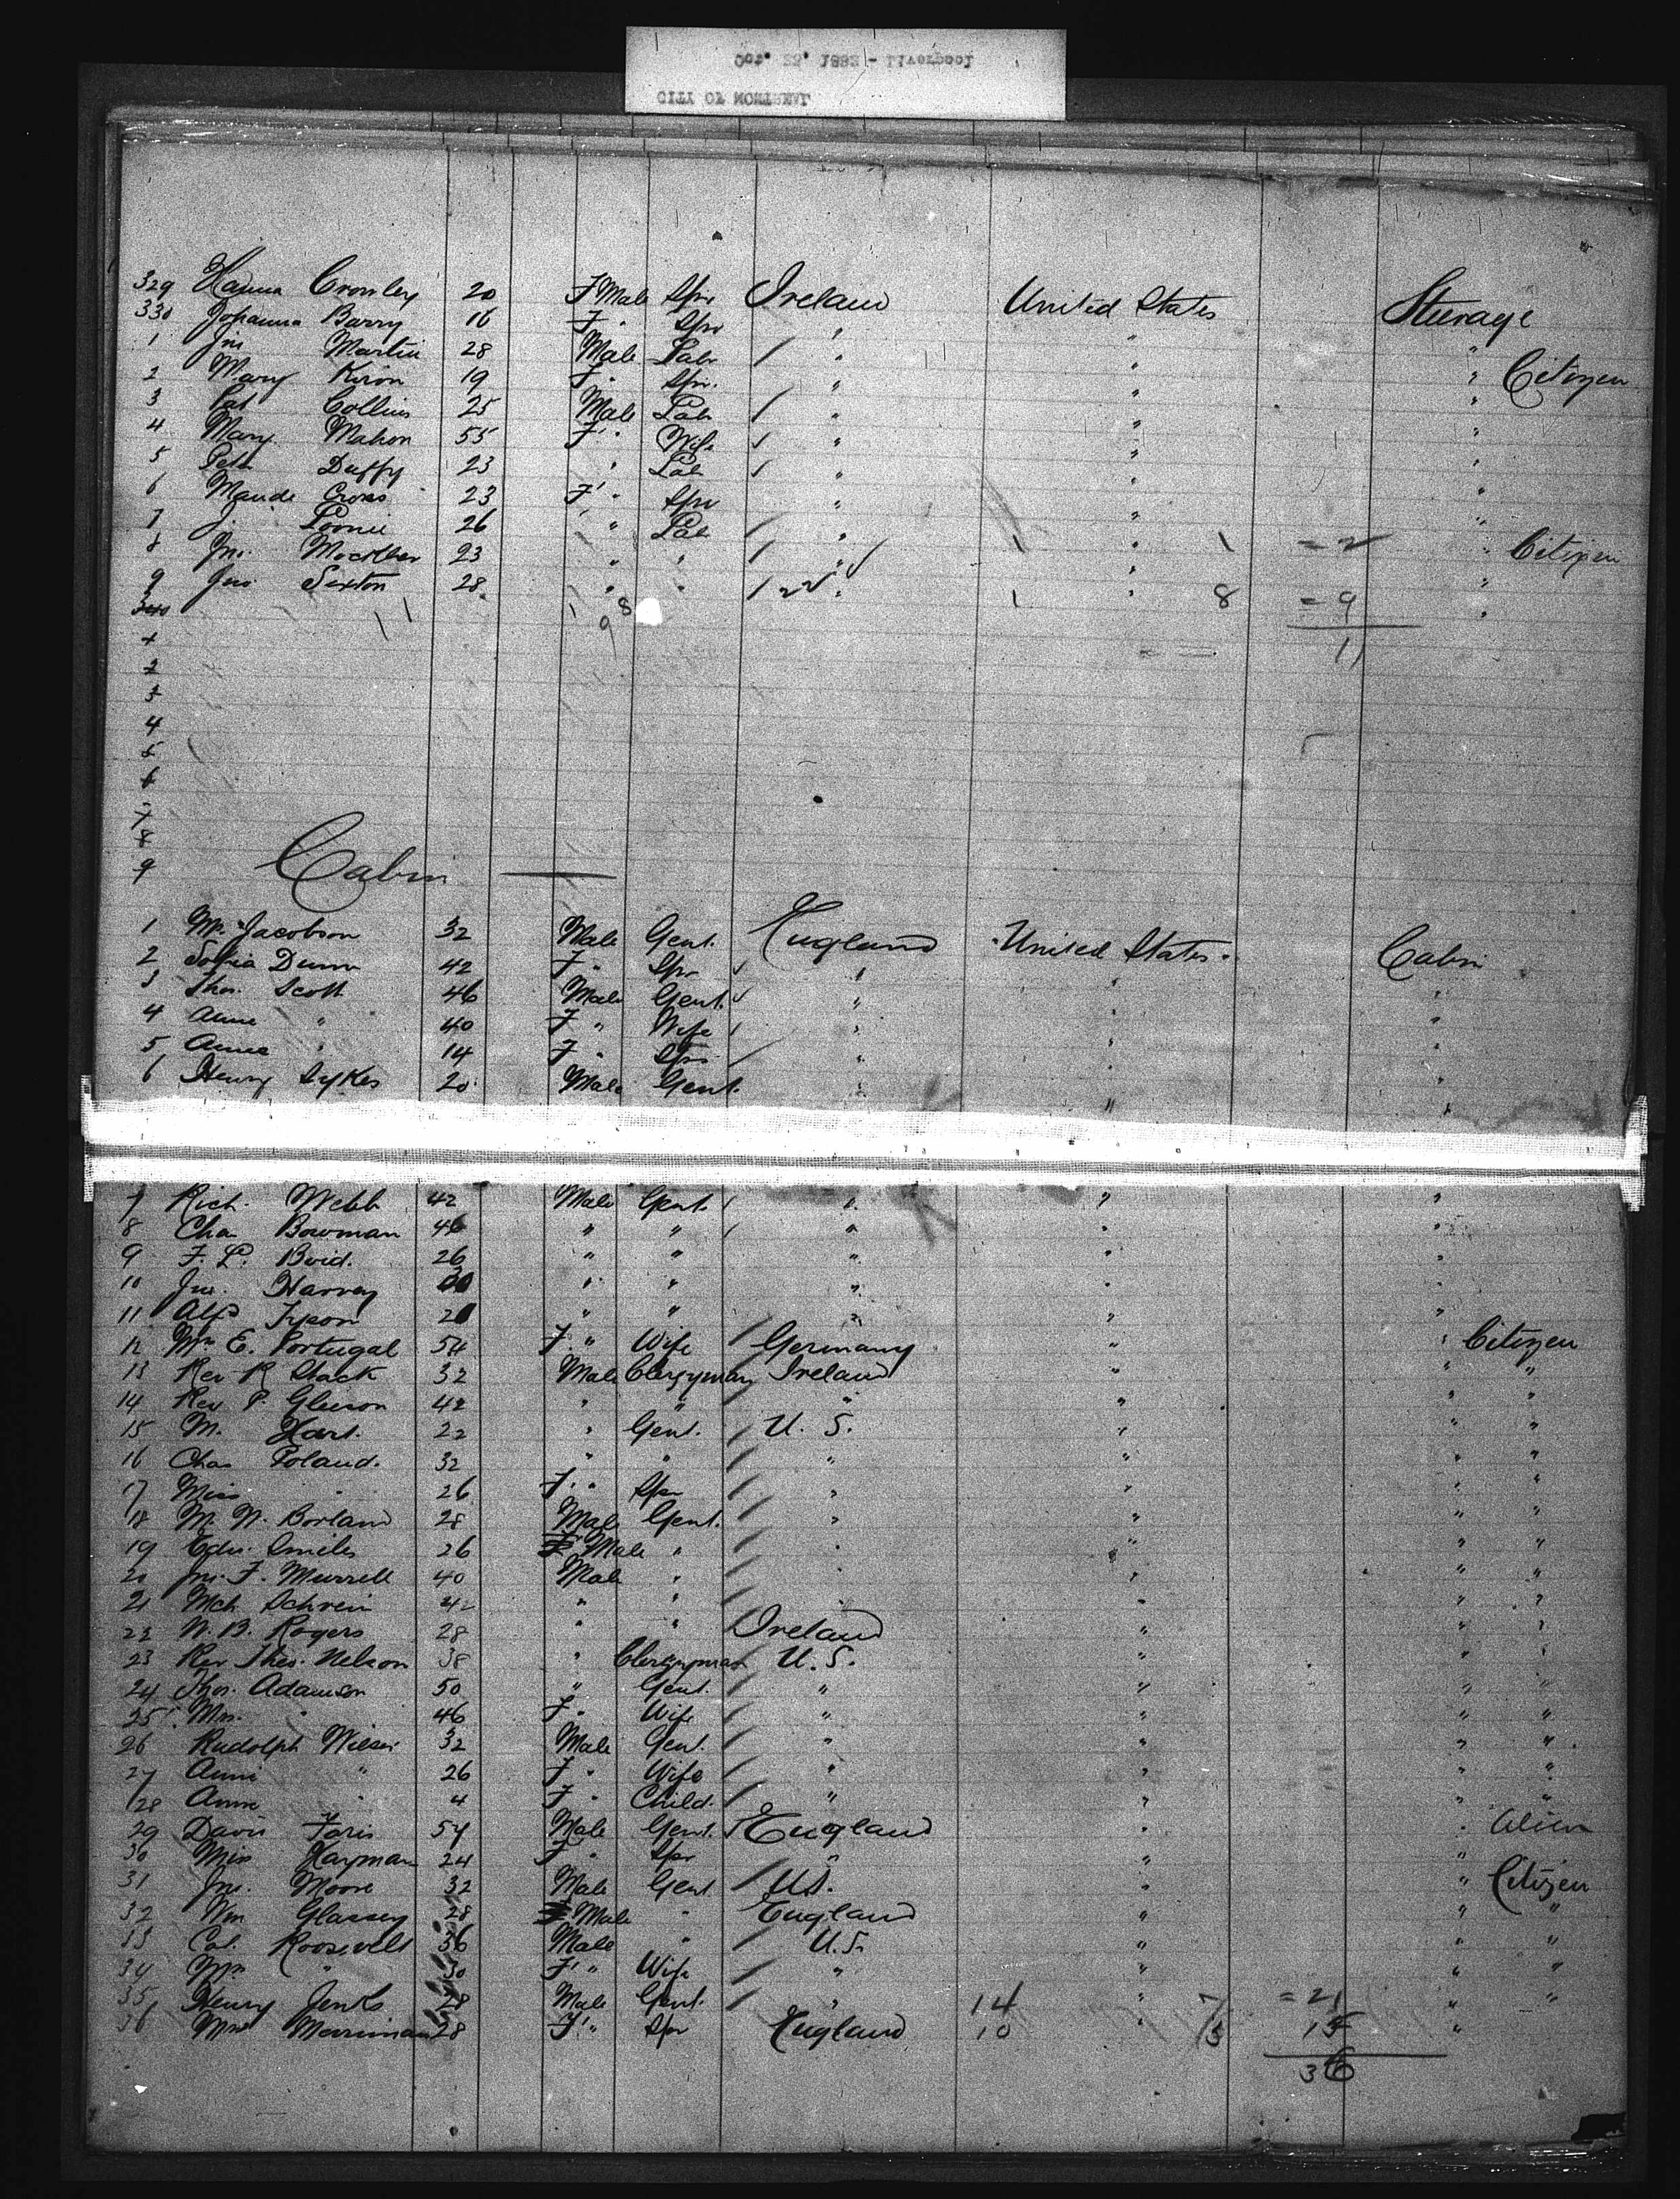 CITY OF MONTREAL
329 Hanna Crowley 20 F Male Spr Ireland United States Steerage
330 Johanna Barry 16 F " Spr " " "
1 Jno Martin 28 Male Labr " " " Citizen
2 Mary 19 F " Spr. " " "
3 Pat Collins 25 Male Labr " " "
4 Mary Mahon 55 F " Wife " " "
5 Peter Duffy 23 " Lab " " "
6 Maude Cross 23 F " Spr " " "
7 J. 26 " Lab " "
8 Jno. 23 " " " 1 " 1 = 2 " Citizen
9 Jno Sexton 28 " " " 1 " 8 = 9 "
340 11 1 8 9 11
1
2
3
4
5
6
7
8
9 Cabin
1 Mr. Jacobson 32 Male Gent. England United States. Cabin
2 Sofia Dunn 42 F " Spr " " "
3 Thos. Scott 46 Male Gent. " " "
4 Anne " 40 F " Wife " " "
5 Annie " 14 F " Spr " " "
6 Henry Sykes 20 Male Gent. " " "
7 Rich. Webb 42 Male Gent. " " "
8 Chas Bowman 46 " " " " "
9 F. L. 26 " " " " "
10 Jno. Harvey 30 " " " " "
11 Alfd Tyson 20 " " " " "
12 Mrs E. Portugal 54 F. " Wife Germany " " Citizen
13 Rev R Stack 32 Male Clergyman Ireland " " "
14 Rev P. Gleeson 42 " " " " " "
15 M. Hart. 22 " Gent. U. S. " " "
16 Chas Poland. 32 " " " " " "
17 Miss " 26 F. " Spr " " " "
18 M. W. Borland 28 Male Gent. " " " "
19 Edw. Smiles 26 Male " " " " "
20 Jno. F. Murrell 40 Male " " " " "
21 Mch 42 " " " " " "
22 W. B. Rogers 28 " " Ireland " " "
23 Rev Thos. Nelson 38 " Clergyman U. S. " " "
24 Thos. Adamson 50 " Gent. " " " "
25 Mrs. " 46 F. " Wife " " " "
26 Rudolph 32 Male Gent. " " " "
27 Anni " 26 F " Wife " " " "
28 Anna " 4 F " Child. " " " "
29 Faris 54 Male Gent. England " " Alien
30 Miss Hayman 24 F " Spr " " "
31 Jno. Moore 32 Male Gent U.S. " " Citizen
32 Wm Glassey 28 Male " England " " "
33 Col. Roosevelt 36 Male " U.S. " " "
34 Mrs " 30 F " Wife " " " "
35 Henry Jenks 28 Male Gent. " 14 " 7 = 21 " "
36 Merriman 28 F " Spr England 10 " "
36